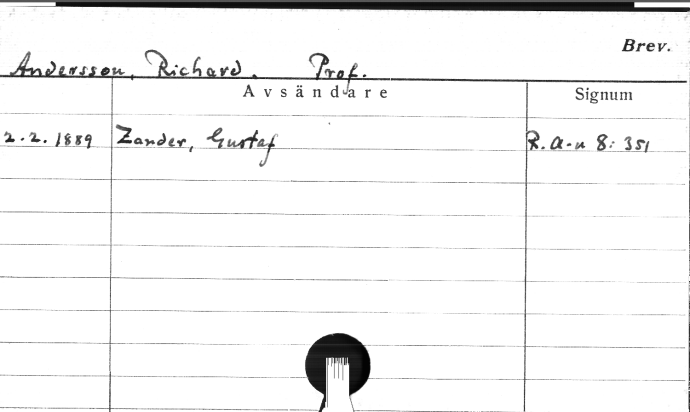 Brev.
Andersson, Richard. Prof.
Avsändare Signum
2.2.1889 Zander, Gustaf R.a-n 8:351